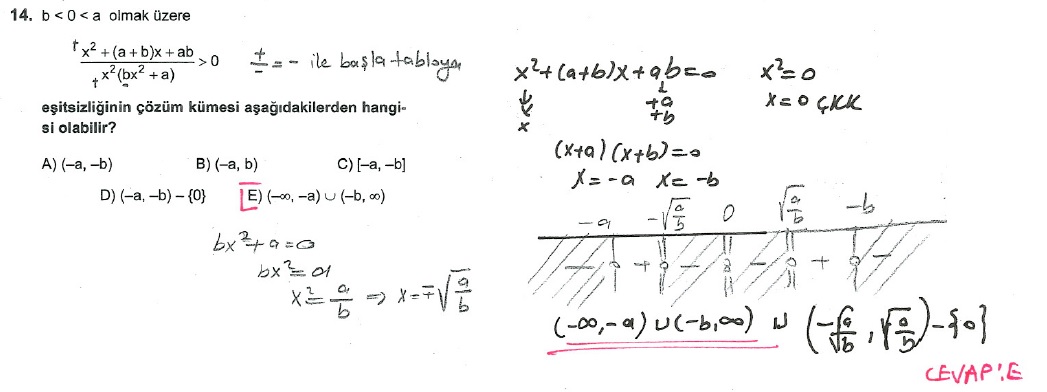 14. b < 0 < a olmak üzere
+ x² + (a + b)x + ab
+ x²(bx² + a) > 0
-
+/- = - ile başla tabloya
eşitsizliğinin çözüm kümesi aşağıdakilerden hangi-
si olabilir?
A) (–a, –b) B) (–a, b) C) [–a, –b]
D) (–a, –b) – {0} E) (–∞, –a) ∪ (–b, ∞)
bx² + a = 0
bx² = a
x² = a/b ⇒ x = ∓√(a/b)
x² + (a+b)x + ab = 0
x +a
+b
(x+a)(x+b) = 0
x = -a x = -b
x² = 0
x = 0 ÇKK
-a -√(a/b) 0 √(a/b) -b
- + - - + -
(-∞, -a) ∪ (-b, ∞) ∪ (-√(a/b), √(a/b)) - {0}
CEVAP: E